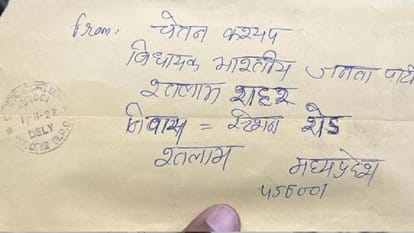 From: चेतन कश्यप
विधायक भारतीय जनता पार्टी
रतलाम शहर
निवास = स्टेशन रोड
रतलाम मध्यप्रदेश
456001
DELY